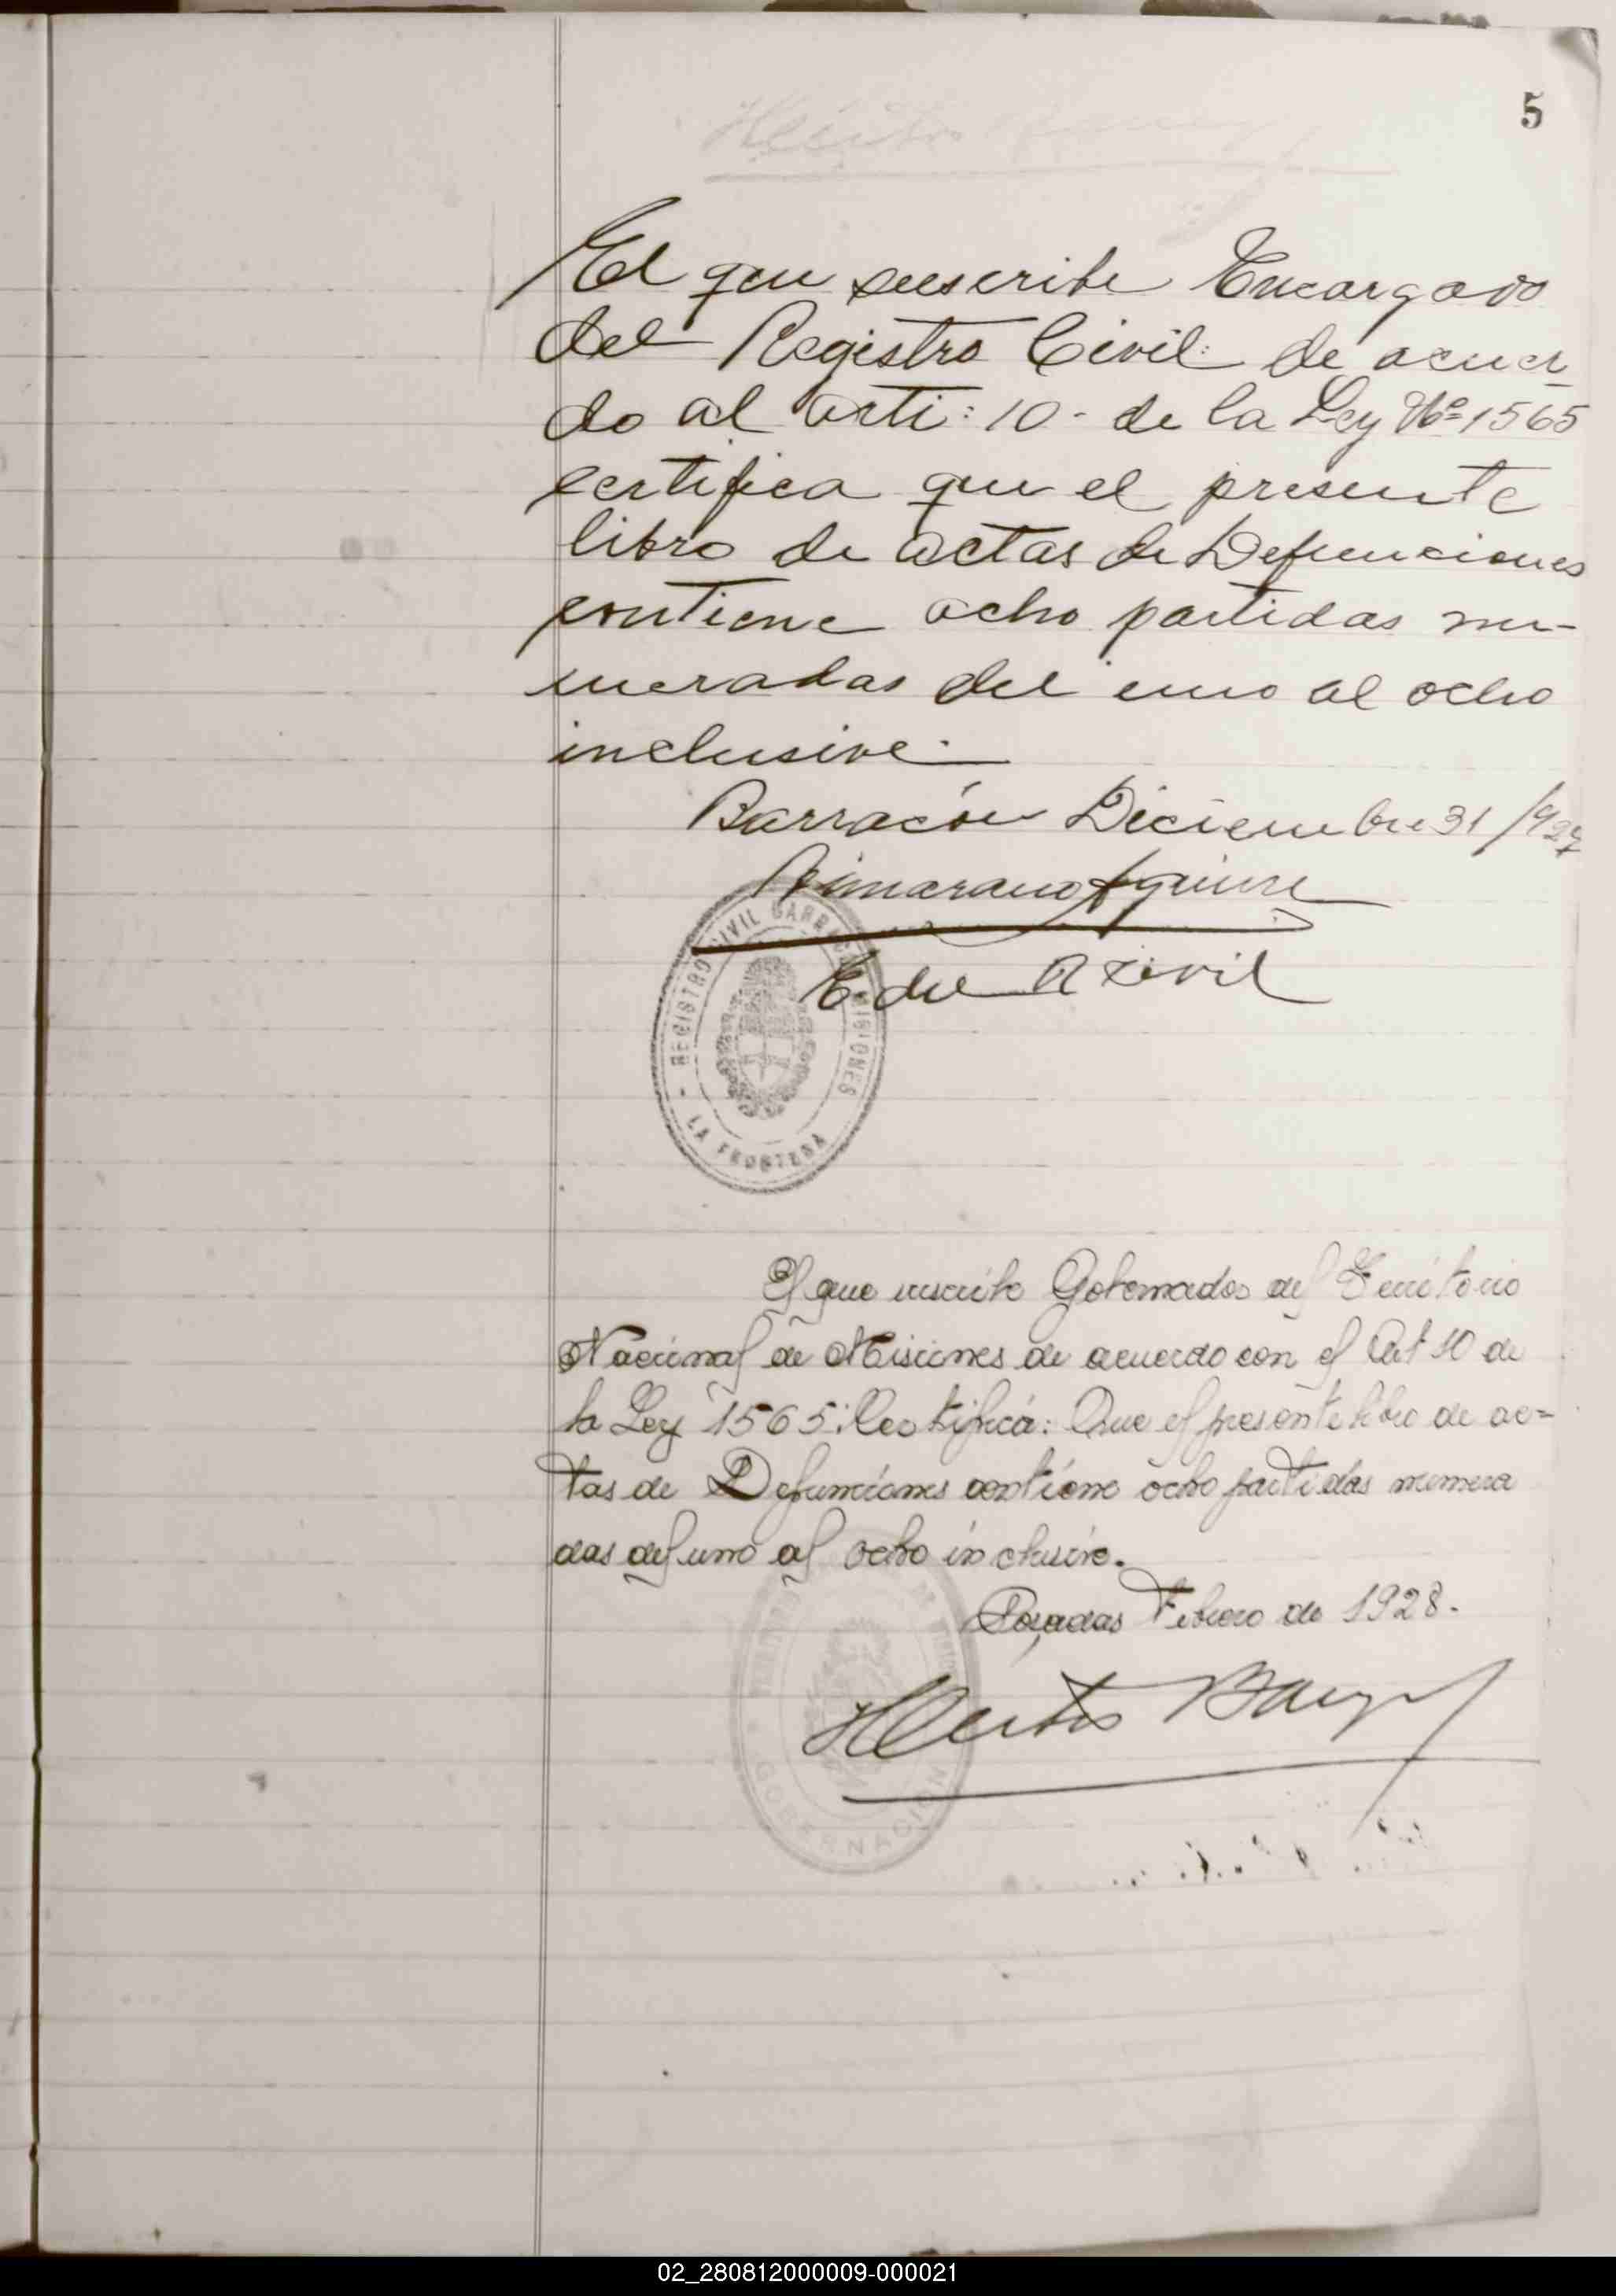 5
El que suscribe Encargado
del Registro Civil: de acuer
do al arti: 10 - de la Ley Nº 1565
certifica que el presente
libro de actas de Defunciones
contiene ocho partidas nu-
meradas del uno al ocho
inclusive.
Barracón Diciembre 31/927
Aguirre
E. del R Civil
REGISTRO CIVIL BARRACON MISIONES
- LA FRONTERA
El que suscribe Gobernador del Territorio
Nacional de Misiones de acuerdo con el Art 10 de
la Ley 1565: Certifica: Que el presente libro de ac=
tas de Defunciones contiene ocho partidas numera
das del uno al ocho inclusive.
Posadas Febrero de 1928.
GOBERNACION
02_280812000009-000021